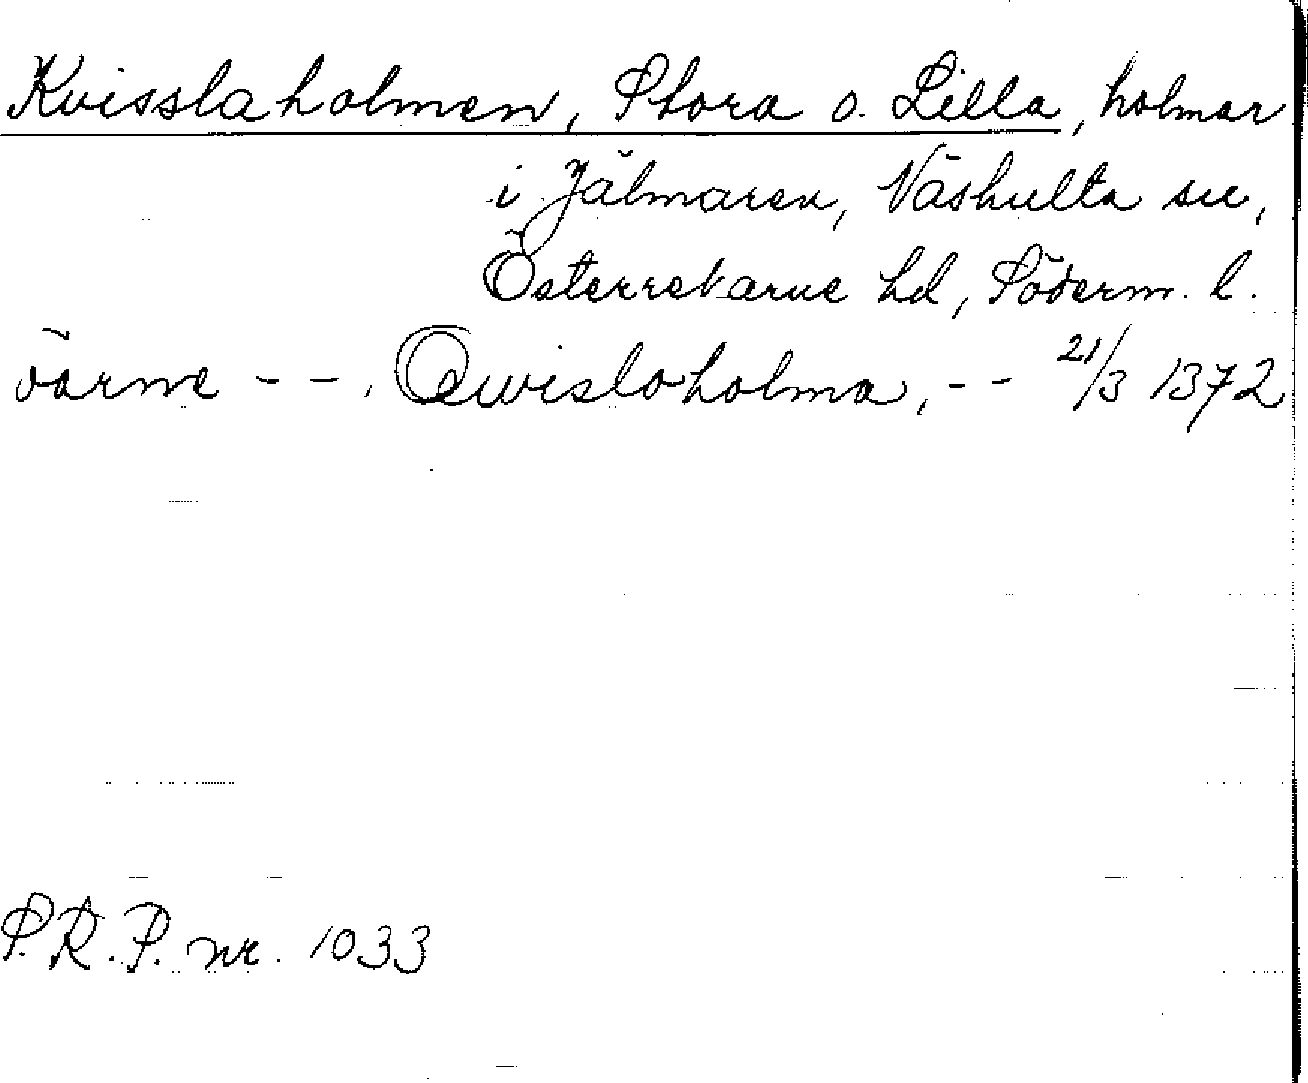 Kvisslaholmen, Stora o. Lilla, holmar
i Jälmaren, Västhulta sn,
Österrekarne hd, Söderm. l.
öarne - - . Qwisloholma, - - 21/3 1372
S.R.P. nr. 1033